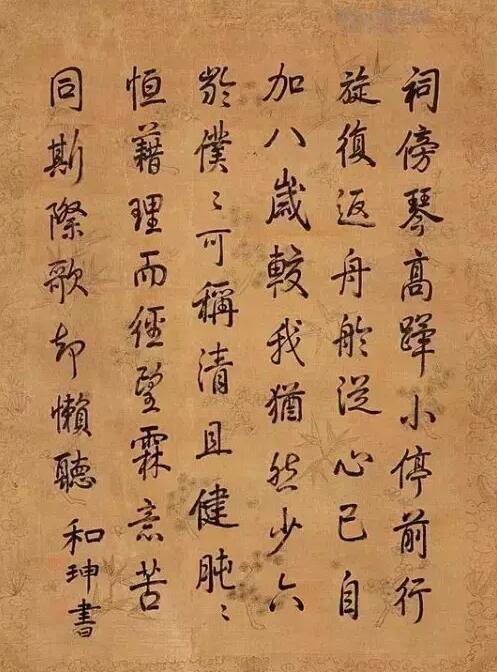 祠傍琴高蹕小停前行
旋復返舟舲從心已自
加八歲較我猶然少六
齡僕〻可稱清且健肫〻
恒藉理而經望霖意苦
同斯際歌却懶聽 和珅書